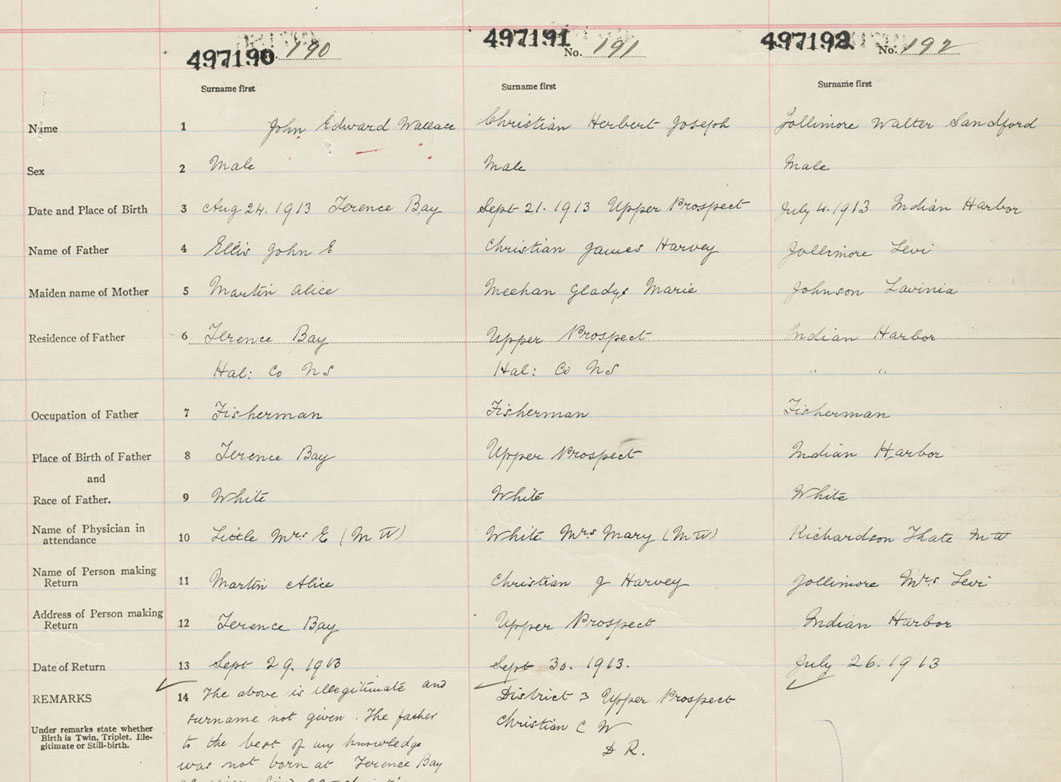 497190 190 497191 No. 191 497192 No. 192
Surname first Surname first Surname first
Name 1 John Edward Wallace Christian Herbert Joseph Jollimore Walter Sandford
Sex 2 Male Male Male
Date and Place of Birth 3 Aug 24. 1913 Terence Bay Sept 21. 1913 Upper Prospect July 4. 1913 Indian Harbor
Name of Father 4 Ellis John E Christian James Harvey Jollimore Levi
Maiden name of Mother 5 Martin Alice Meehan Gladys Marie Johnson Lavinia
Residence of Father 6 Terence Bay Upper Prospect Indian Harbor
Hal: Co NS Hal: Co NS " "
Occupation of Father 7 Fisherman Fisherman Fisherman
Place of Birth of Father 8 Terence Bay Upper Prospect Indian Harbor
and
Race of Father. 9 White White White
Name of Physician in
attendance 10 Little Mrs E (MW) White Mrs Mary (MW) Richardson Thate MW
Name of Person making
Return 11 Martin Alice Christian J Harvey Jollimore Mrs Levi
Address of Person making
Return 12 Terence Bay Upper Prospect Indian Harbor
Date of Return 13 Sept 29. 1913 Sept 30. 1913. July 26. 1913
REMARKS 14 The above is illegitimate and District 3 Upper Prospect
surname not given. The father Christian C W
Under remarks state whether
Birth is Twin, Triplet, Ille-
gitimate or Still-birth.
to the best of my knowledge D R.
was not born at Terence Bay